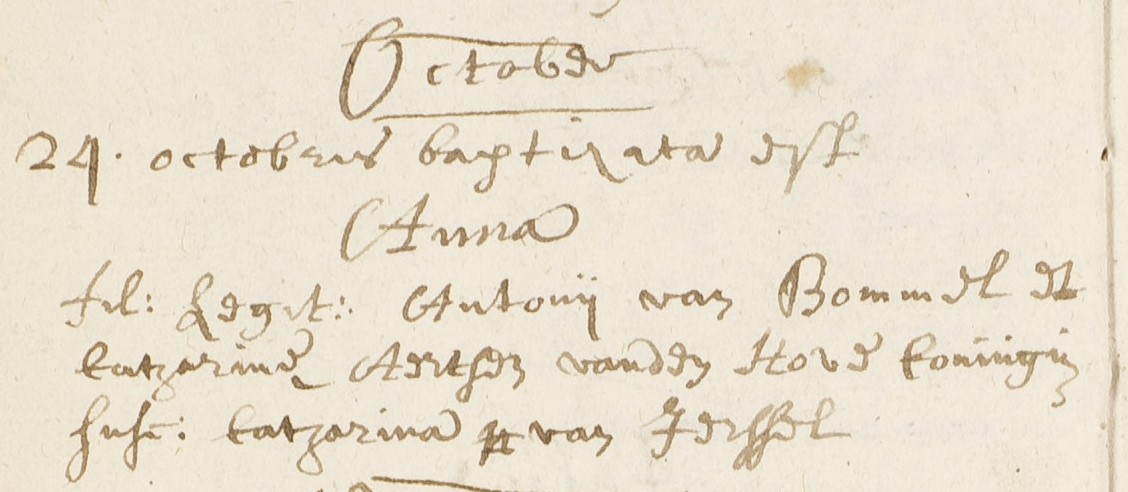 October
24. octobris baptizata est
Anna
fil: Legit: Antonij van Bommel et
Catharine Aertsen vanden Hove Coningin
susc: Catharina van Jerssel